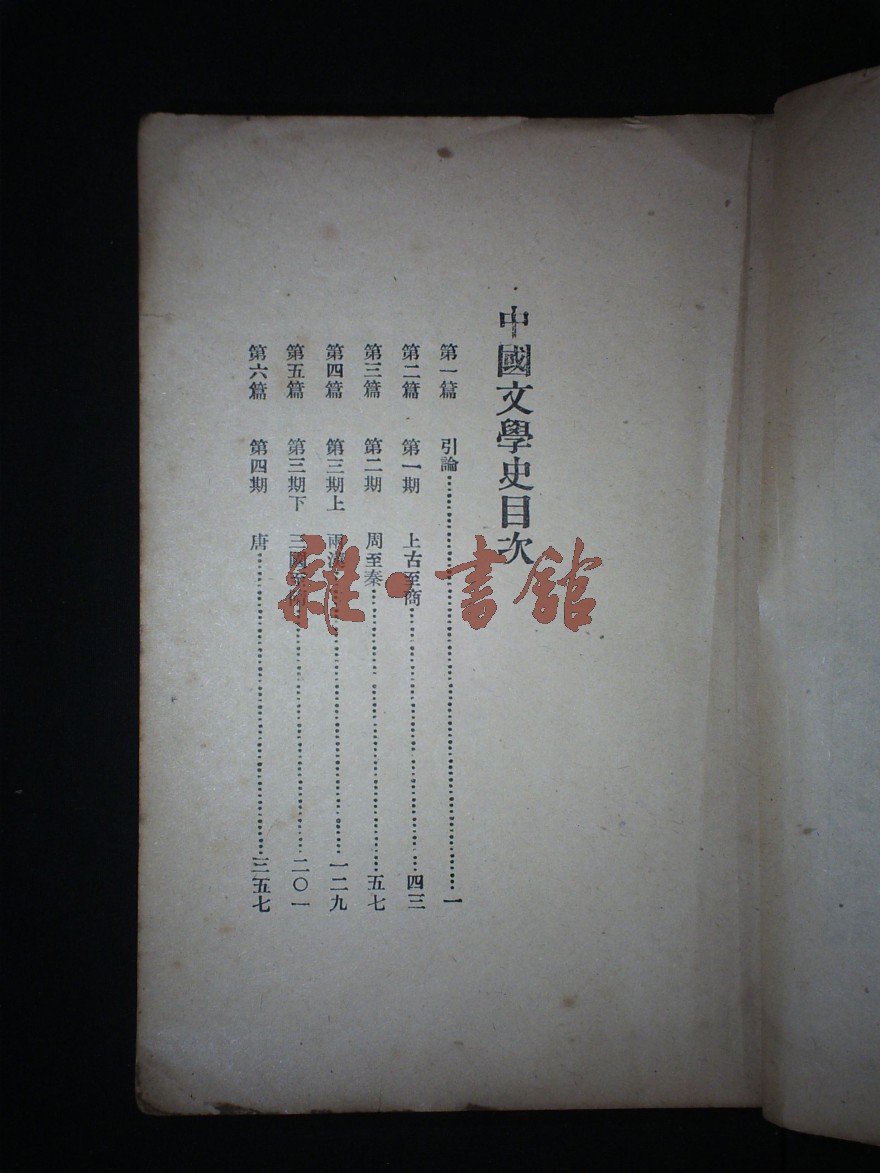 中國文學史目次
第一篇 引論……一
第二篇 第一期 上古至商……四三
第三篇 第二期 周至秦……五七
第四篇 第三期上 兩漢……一二九
第五篇 第三期下 三國至隋……二〇一
第六篇 第四期 唐……三五七
雜·書館